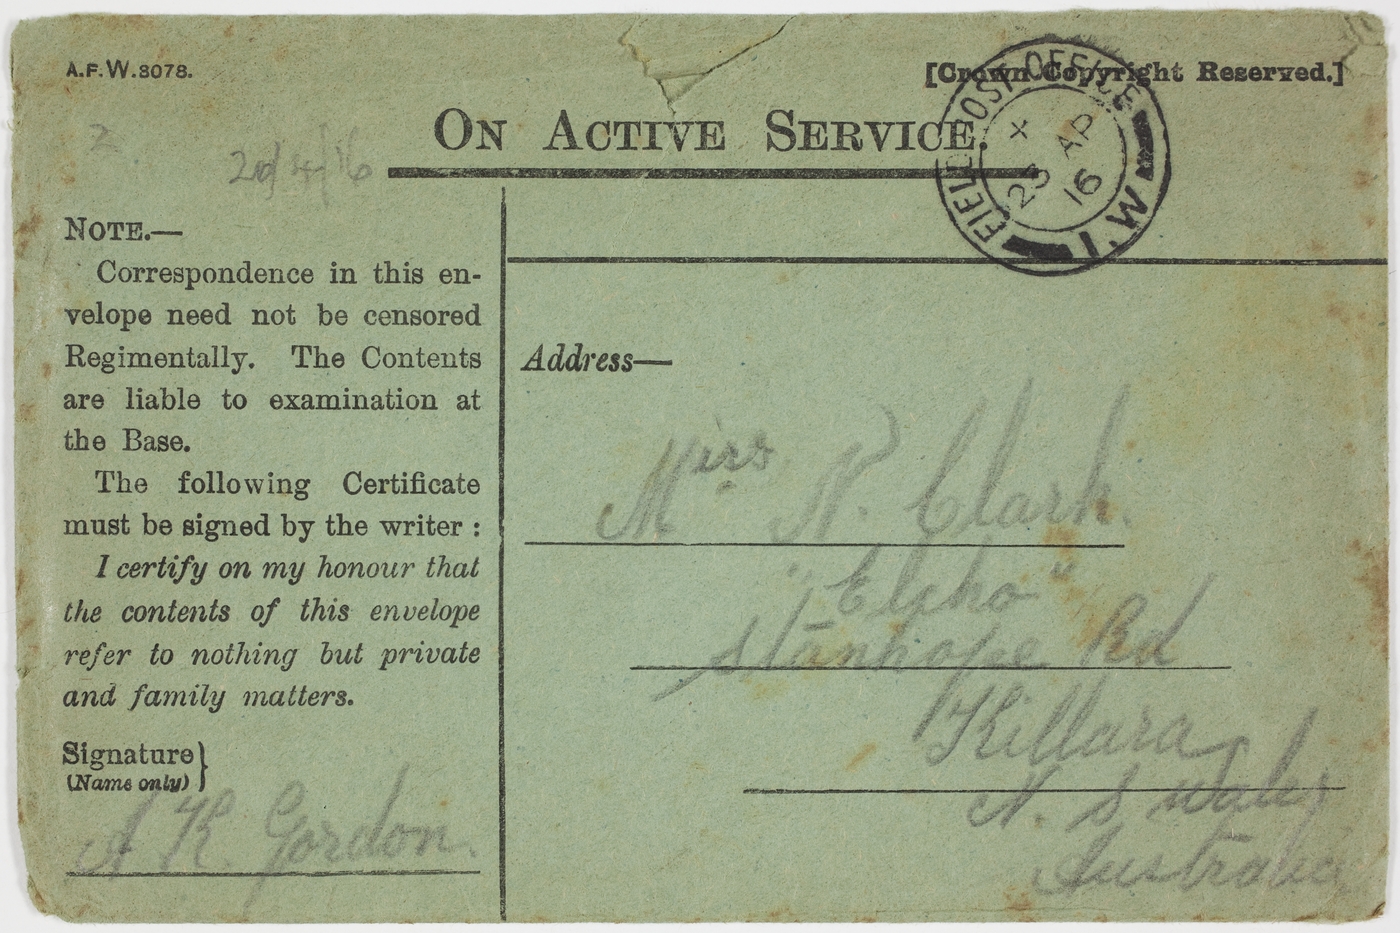 A.F.W.3078.
[Crown Copyright Reserved.]
ON ACTIVE SERVICE.
FIELD POST OFFICE
X
23 AP
16
I.W
2
20/4/16
NOTE.—
Correspondence in this en-
velope need not be censored
Regimentally. The Contents
are liable to examination at
the Base.
The following Certificate
must be signed by the writer :
I certify on my honour that
the contents of this envelope
refer to nothing but private
and family matters.
Signature }
(Name only)
A K. Gordon.
Address—
Miss N. Clark.
"Elcho"
Stanhope Rd
Killara
N. S Wales
Australia